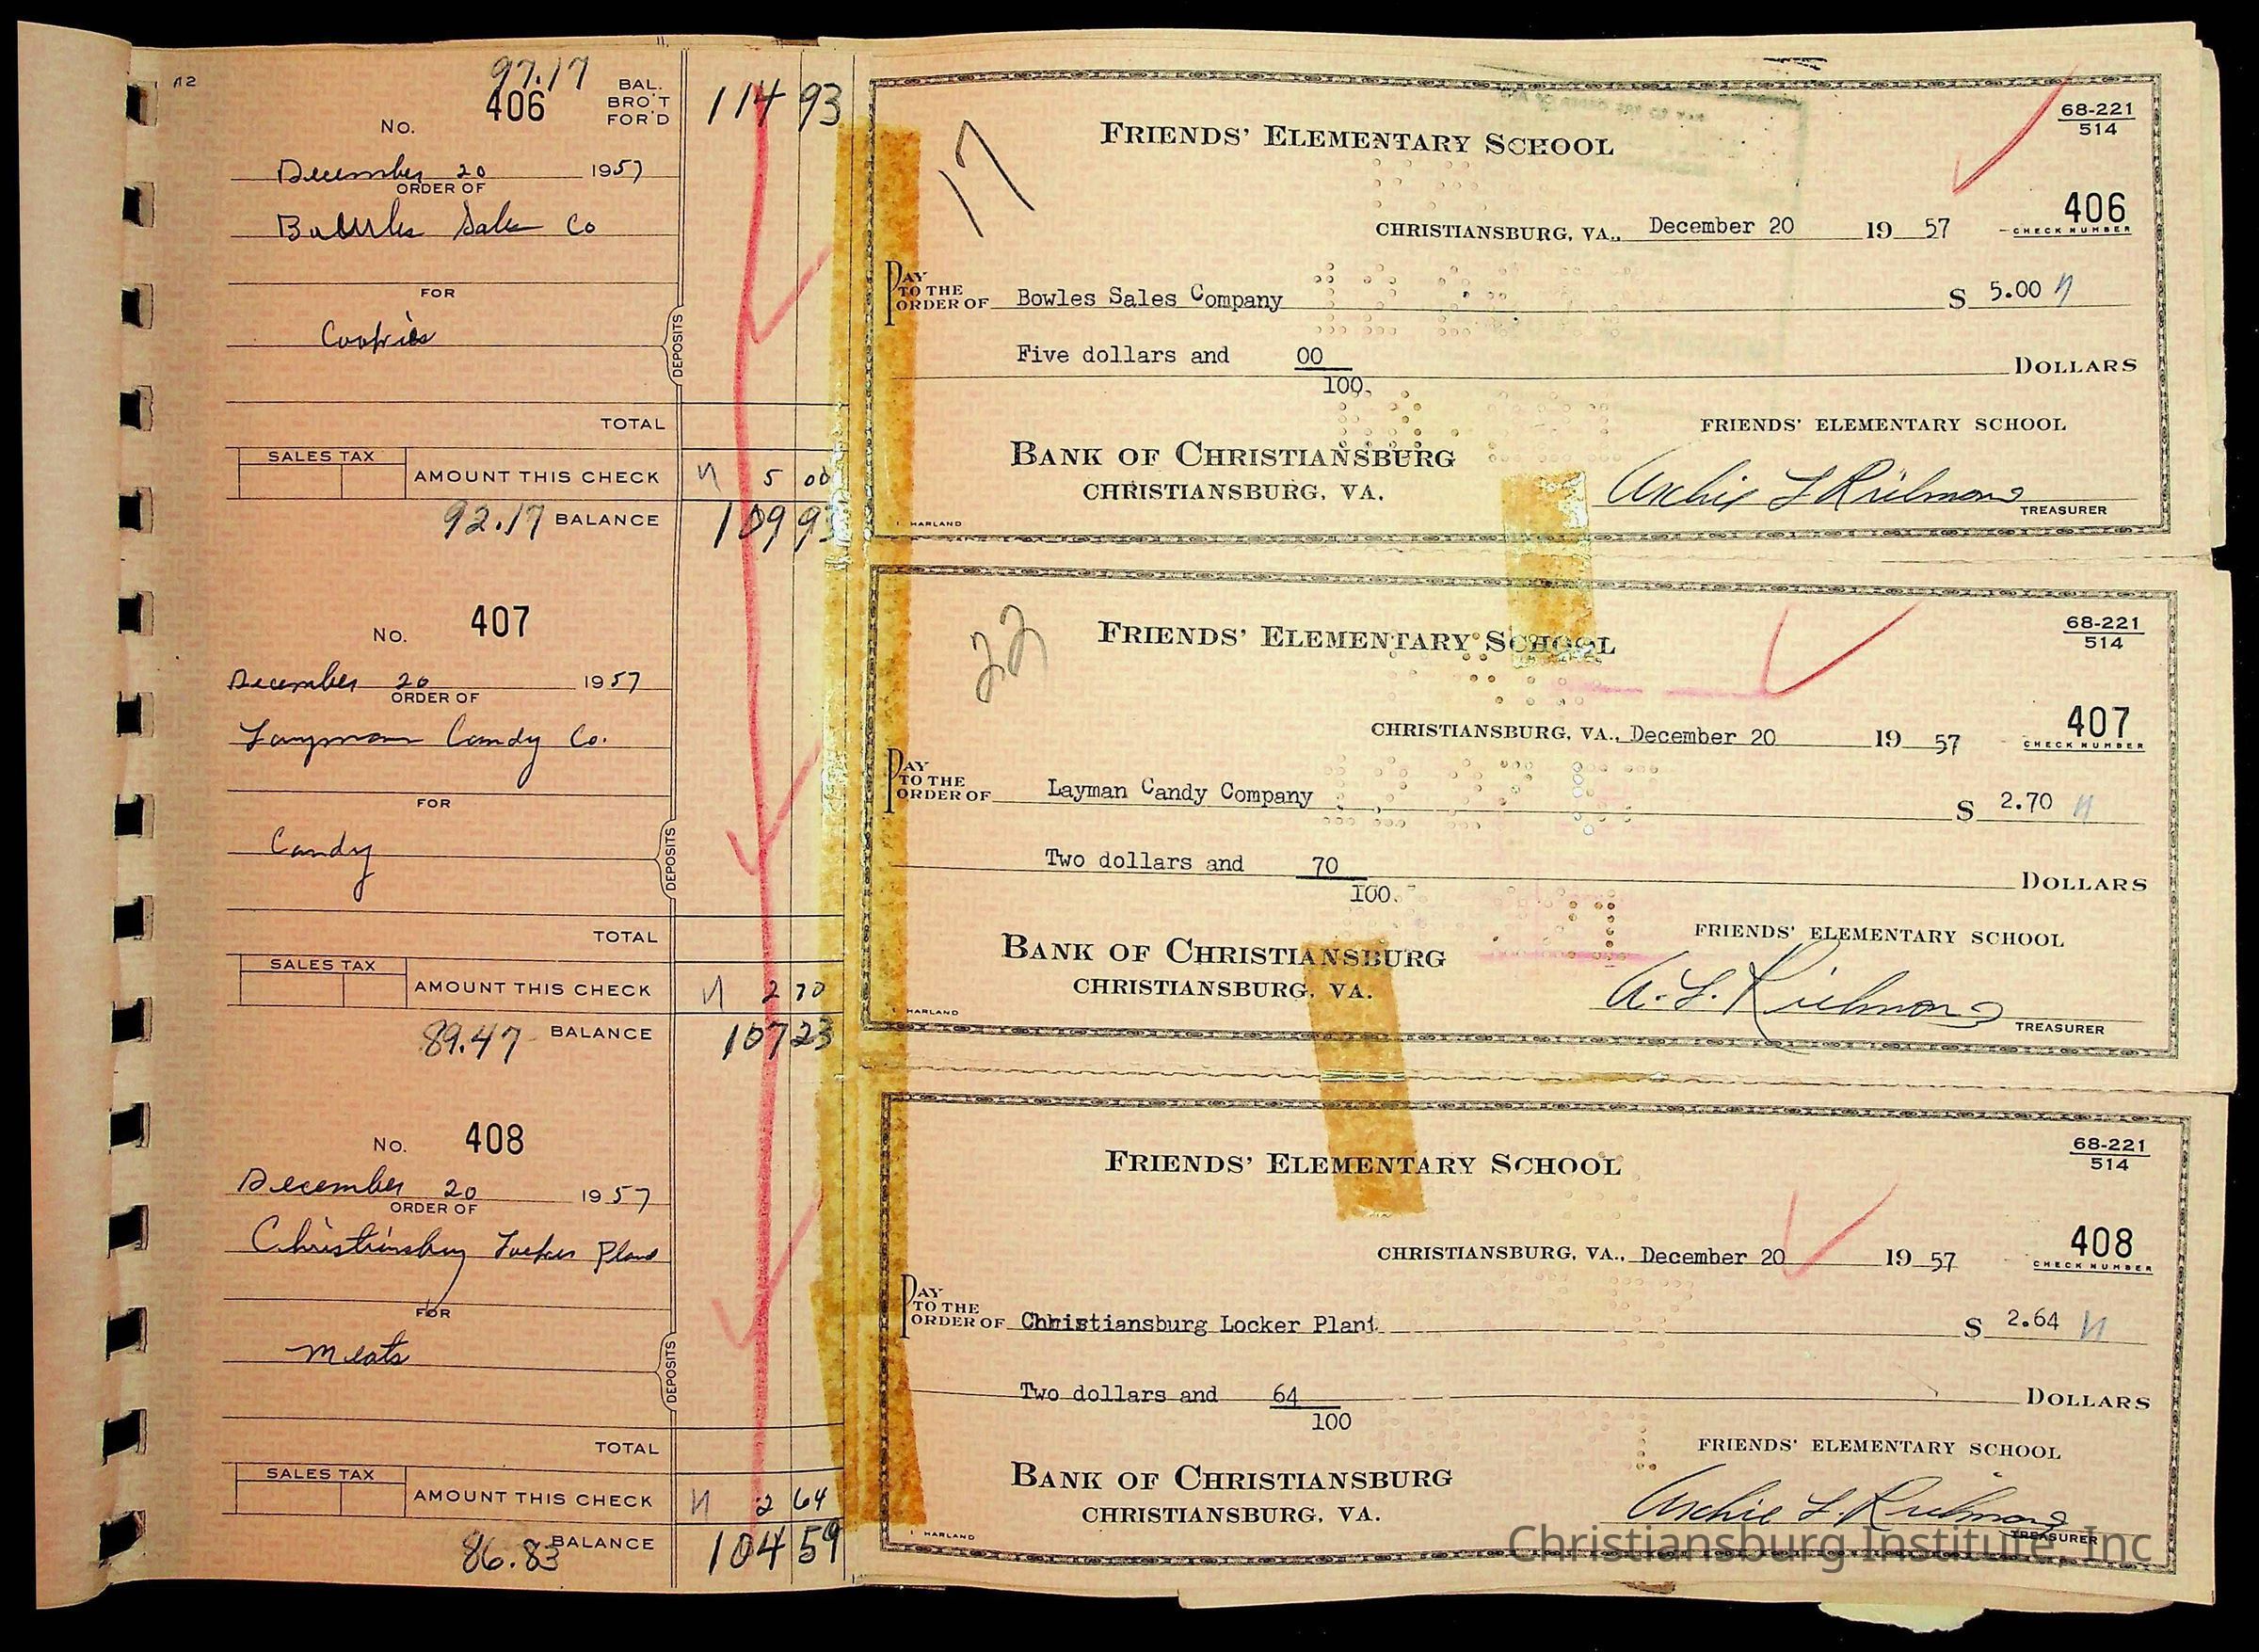 A2
97.17
No. 406 BAL. BRO'T FOR'D 114 93
December 20 1957
ORDER OF
Bowles Sales Co
FOR
Cookies
DEPOSITS
TOTAL
SALES TAX
AMOUNT THIS CHECK 5 00
92.17 BALANCE 109 93
No. 407
December 20 1957
ORDER OF
Layman Candy Co.
FOR
Candy
DEPOSITS
TOTAL
SALES TAX
AMOUNT THIS CHECK 2 70
89.47 BALANCE 107 23
No. 408
December 20 1957
ORDER OF
Christiansburg Locker Plant
FOR
Meats
DEPOSITS
TOTAL
SALES TAX
AMOUNT THIS CHECK 2 64
86.83 BALANCE 104 59
17
FRIENDS' ELEMENTARY SCHOOL
68-221
514
406
CHECK NUMBER
CHRISTIANSBURG, VA., December 20 19 57
PAY TO THE ORDER OF Bowles Sales Company $ 5.00
Five dollars and 00/100 DOLLARS
FRIENDS' ELEMENTARY SCHOOL
BANK OF CHRISTIANSBURG
CHRISTIANSBURG, VA.
Archie L Richmond
TREASURER
HARLAND
22
FRIENDS' ELEMENTARY SCHOOL
68-221
514
407
CHECK NUMBER
CHRISTIANSBURG, VA., December 20 19 57
PAY TO THE ORDER OF Layman Candy Company $ 2.70
Two dollars and 70/100 DOLLARS
FRIENDS' ELEMENTARY SCHOOL
BANK OF CHRISTIANSBURG
CHRISTIANSBURG, VA.
A. L. Richmond
TREASURER
HARLAND
FRIENDS' ELEMENTARY SCHOOL
68-221
514
408
CHECK NUMBER
CHRISTIANSBURG, VA., December 20 19 57
PAY TO THE ORDER OF Christiansburg Locker Plant $ 2.64
Two dollars and 64/100 DOLLARS
FRIENDS' ELEMENTARY SCHOOL
BANK OF CHRISTIANSBURG
CHRISTIANSBURG, VA.
Archie L. Richmond
TREASURER
HARLAND
Christiansburg Institute, Inc